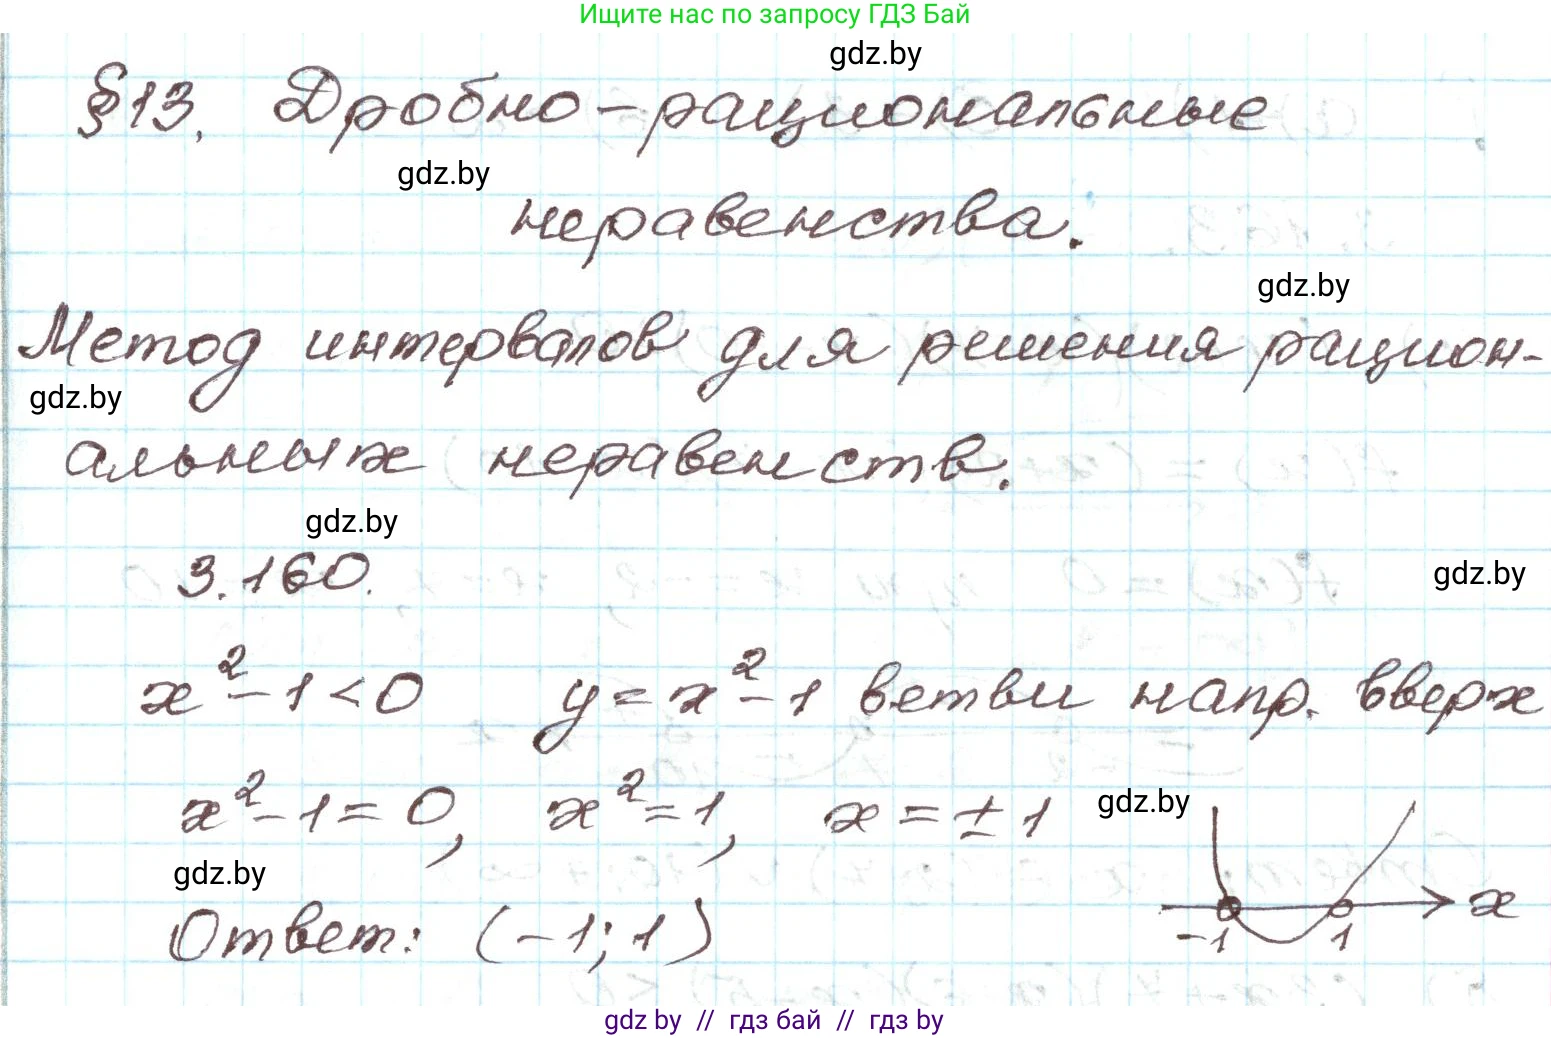 Ищите нас по запросу ГДЗ Бай
gdz.by
§13. Дробно-рациональные
gdz.by
неравенства.
gdz.by
Метод интервалов для решения рацион-
gdz.by
альных неравенств.
gdz.by
3.160.
gdz.by
x²-1<0 y=x²-1 ветви напр. вверх
x²-1=0, x²=1, x=±1
gdz.by
gdz.by
x
-1 1
Ответ: (-1;1)
gdz by // гдз бай // гдз by